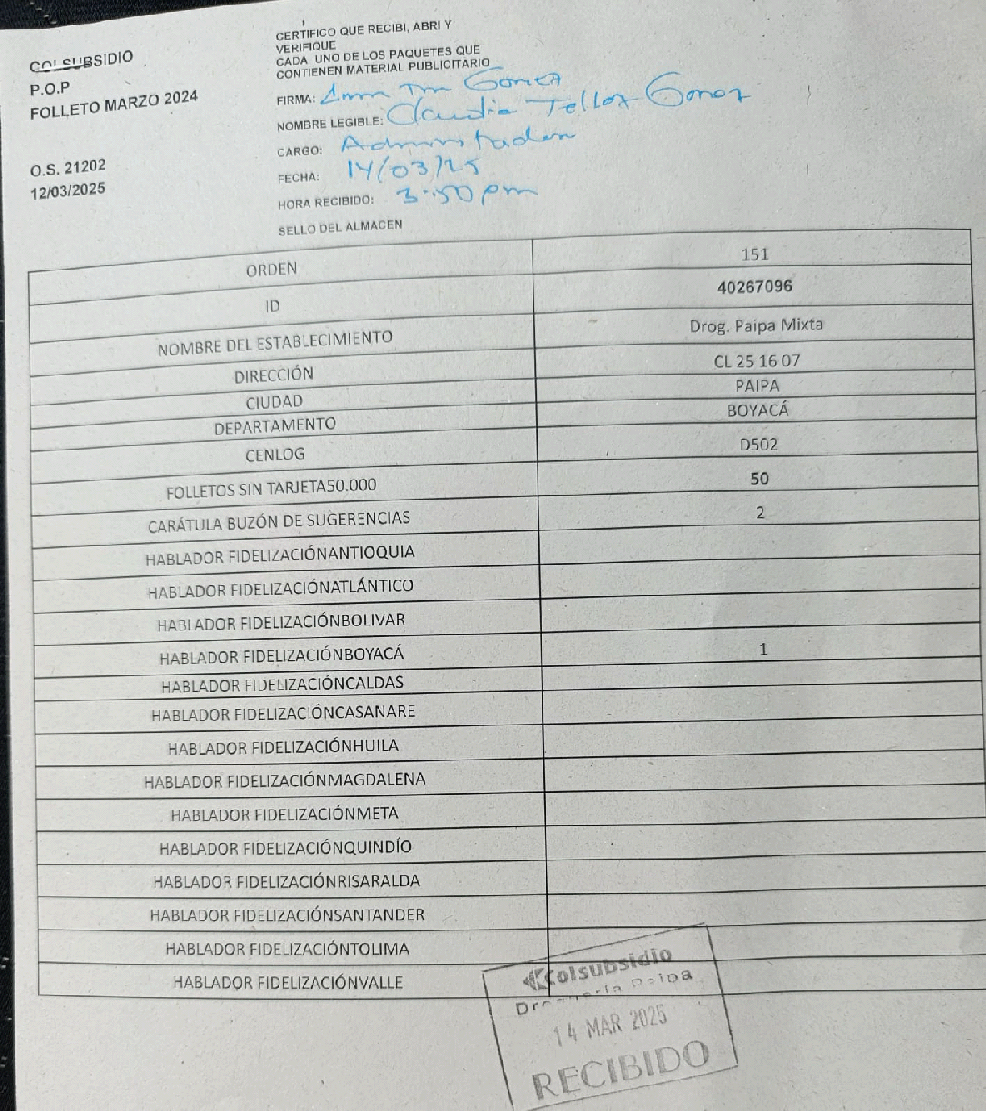 COLSUBSIDIO
P.O.P
FOLLETO MARZO 2024
O.S. 21202
12/03/2025
CERTIFICO QUE RECIBI, ABRI Y
VERIFIQUE
CADA UNO DE LOS PAQUETES QUE
CONTIENEN MATERIAL PUBLICITARIO
FIRMA:
NOMBRE LEGIBLE: Claudia Tellez Gomez
CARGO:
FECHA: 14/03/25
HORA RECIBIDO: 3:50 pm
SELLO DEL ALMACEN
ORDEN 151
ID 40267096
NOMBRE DEL ESTABLECIMIENTO Drog. Paipa Mixta
DIRECCIÓN CL 25 16 07
CIUDAD PAIPA
DEPARTAMENTO BOYACÁ
CENLOG D502
FOLLETOS SIN TARJETA50.000 50
CARÁTULA BUZÓN DE SUGERENCIAS 2
HABLADOR FIDELIZACIÓNANTIOQUIA
HABLADOR FIDELIZACIÓNATLÁNTICO
HABLADOR FIDELIZACIÓNBOLIVAR
HABLADOR FIDELIZACIÓNBOYACÁ 1
HABLADOR FIDELIZACIÓNCALDAS
HABLADOR FIDELIZACIÓNCASANARE
HABLADOR FIDELIZACIÓNHUILA
HABLADOR FIDELIZACIÓNMAGDALENA
HABLADOR FIDELIZACIÓNMETA
HABLADOR FIDELIZACIÓNQUINDÍO
HABLADOR FIDELIZACIÓNRISARALDA
HABLADOR FIDELIZACIÓNSANTANDER
HABLADOR FIDELIZACIÓNTOLIMA
HABLADOR FIDELIZACIÓNVALLE
Colsubsidio
Droguería Paipa
14 MAR 2025
RECIBIDO